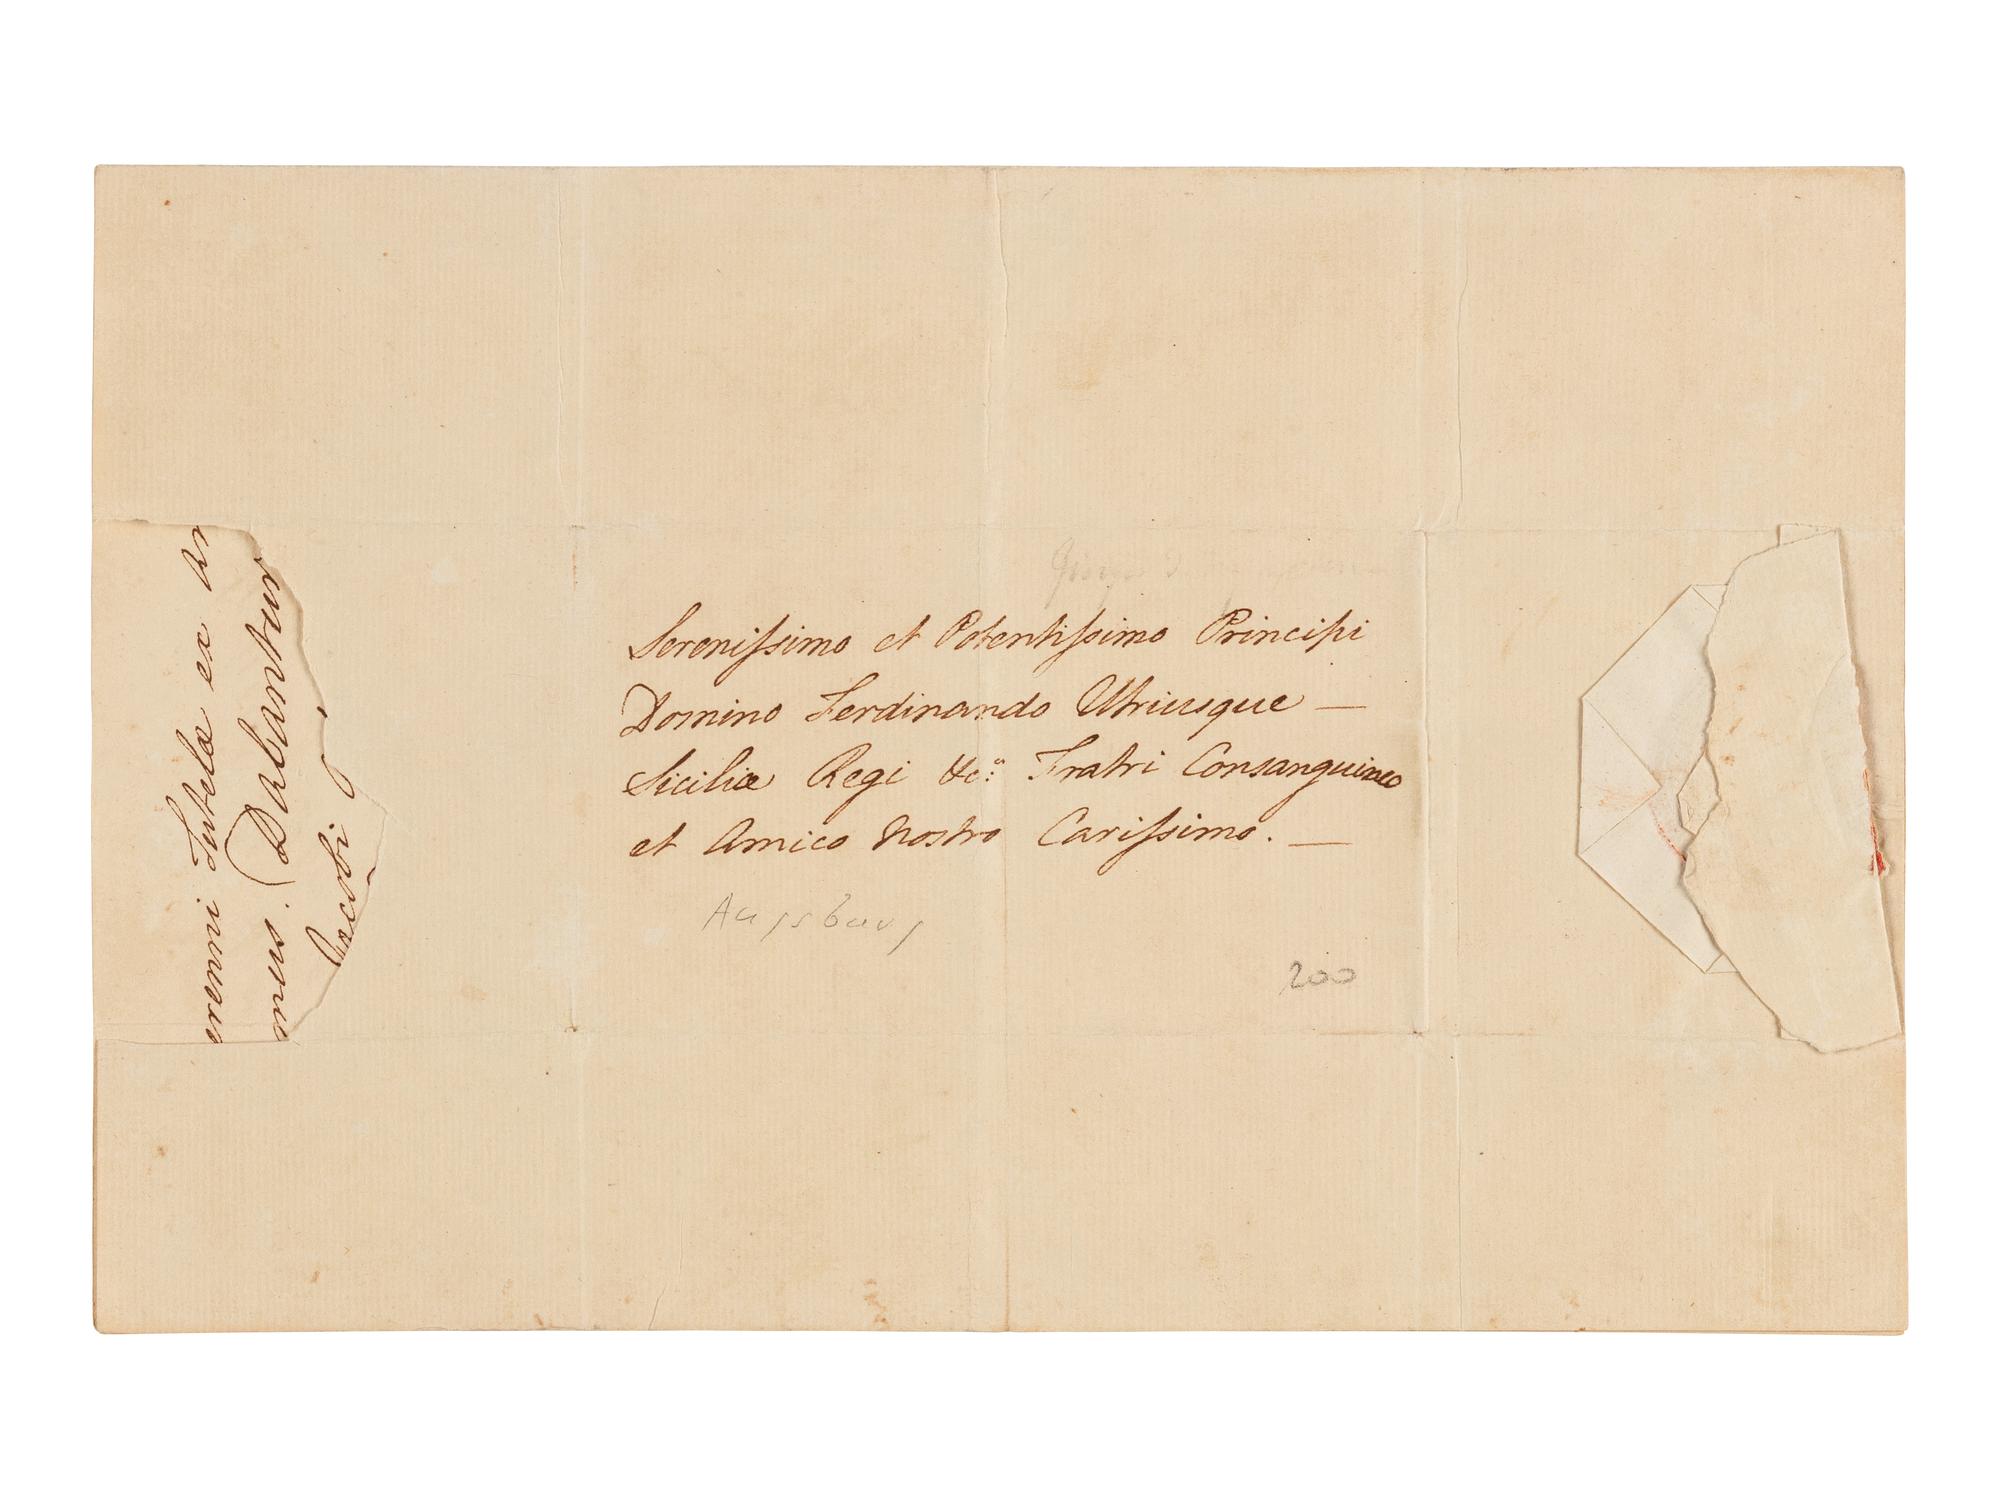 Sereniſsimo et Potentiſsimo Principi
Domino Ferdinando Utriusque —
Siciliæ Regi &c.ª Fratri Consanguineo
et Amico Nostro Cariſsimo. —
Augsburg
200
Tutela ex
mus. Dabantur